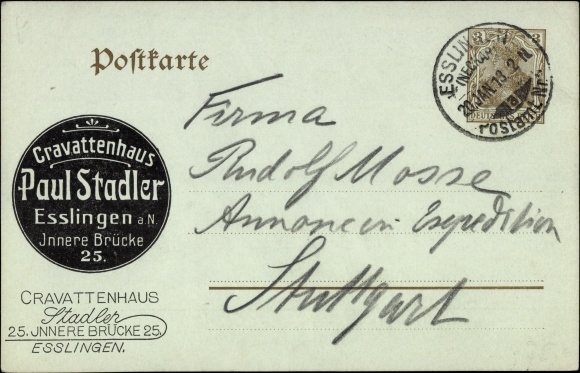 Postkarte
3 3
DEUTSCHES
ESSLINGEN
(NECKAR)
20 JAN 13 2 N.
Postamt Nr.
Cravattenhaus
Paul Stadler
Esslingen a.N.
Jnnere Brücke
25.
CRAVATTENHAUS
Stadler
25. JNNERE BRÜCKE 25.
ESSLINGEN.
Firma
Rudolf Mosse
Annoncen Expedition
Stuttgart